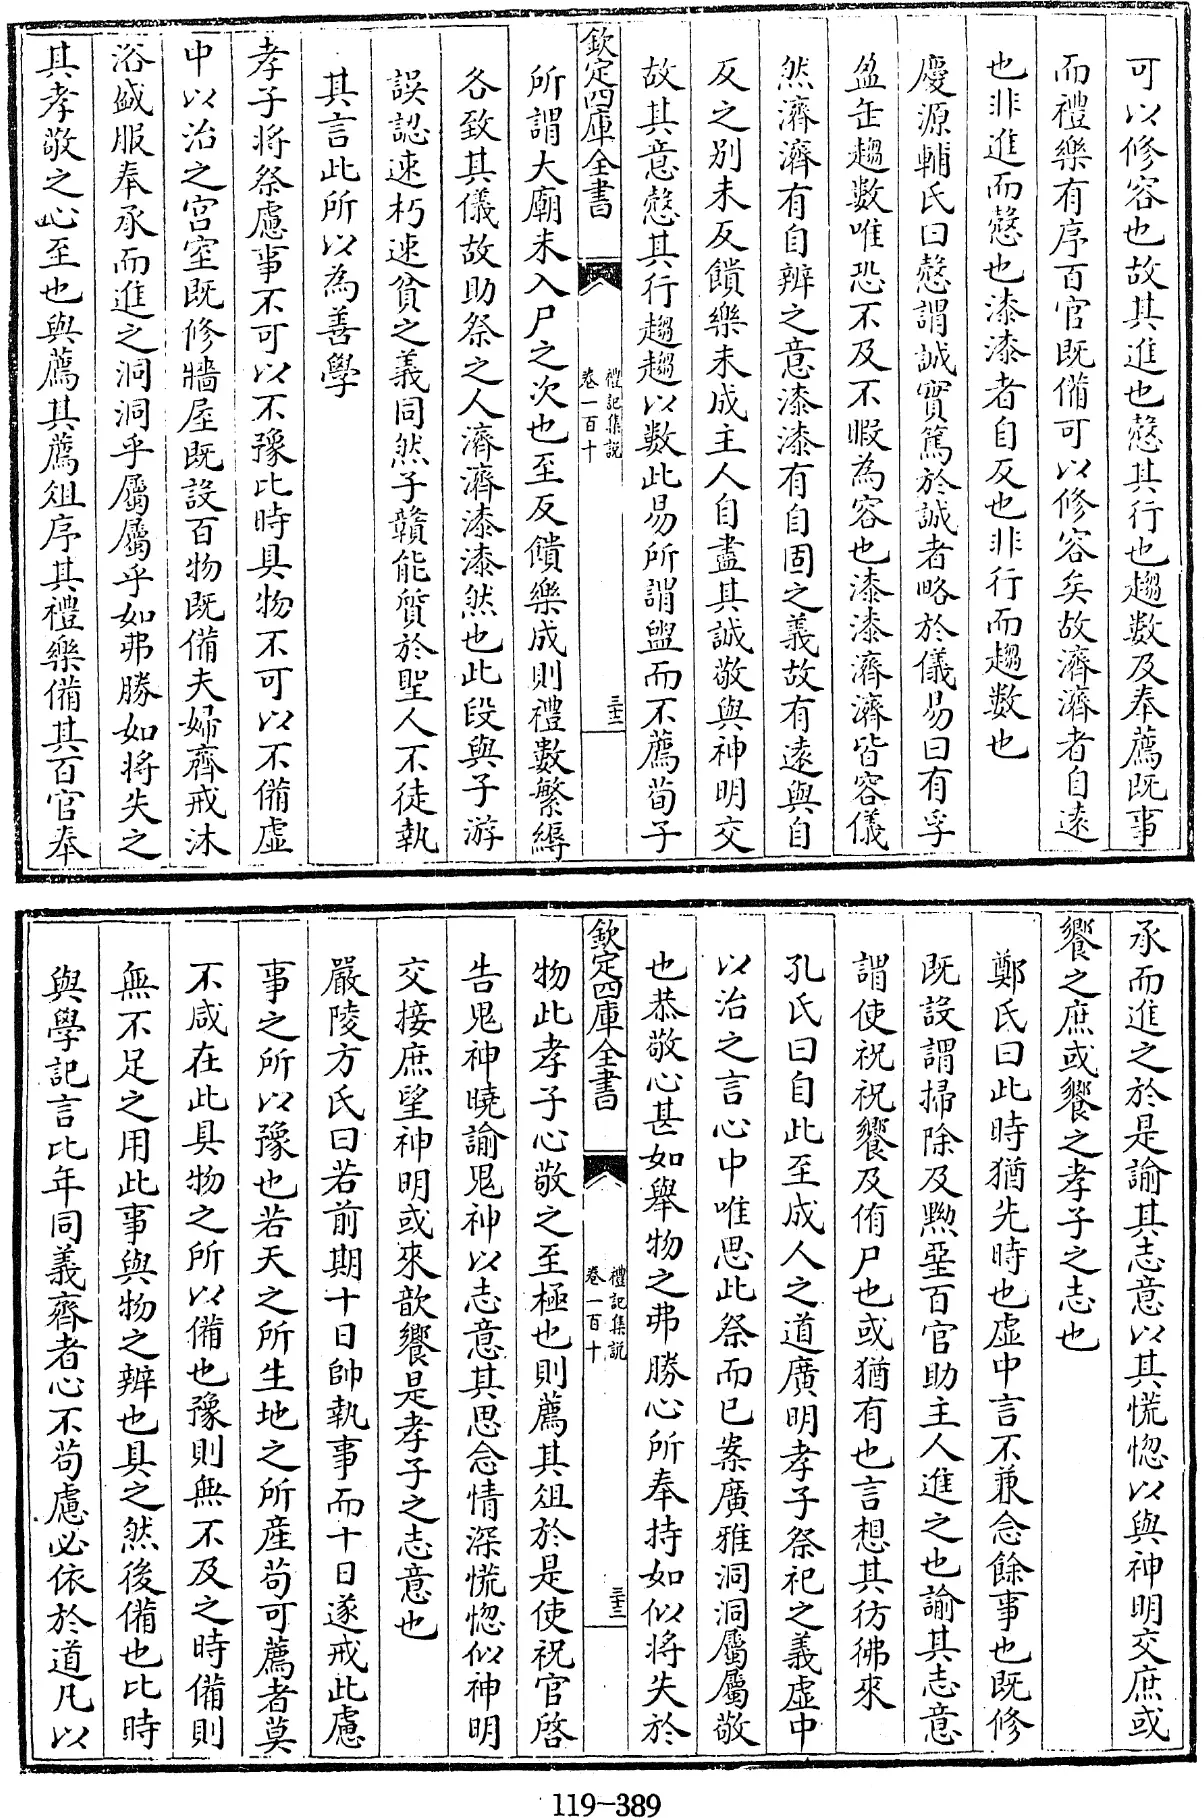 可以修容也故其進也慤其行也趨數及奉薦既事
而禮樂有序百官既備可以修容矣故濟濟者自遠
也非進而慤也漆漆者自反也非行而趨數也
慶源輔氏曰慤謂誠實篤於誠者略於儀易曰有孚
盈缶趨數唯恐不及不暇為容也漆漆濟濟皆容儀
然濟濟有自辨之意漆漆有自固之義故有遠與自
反之别未反饋樂未成主人自盡其誠敬與神明交
故其意慤其行趨趨以數此易所謂盥而不薦荀子
欽定四庫全書
禮記集說
卷一百十
三十二
所謂大廟未入尸之次也至反饋樂成則禮數繁縟
各致其儀故助祭之人濟濟漆漆然也此段與子游
誤認速朽速貧之義同然子贛能質於聖人不徒執
其言此所以為善學
孝子將祭慮事不可以不豫比時具物不可以不備虛
中以治之宫室既修牆屋既設百物既備夫婦齊戒沐
浴盛服奉承而進之洞洞乎屬屬乎如弗勝如將失之
其孝敬之心至也與薦其薦俎序其禮樂備其百官奉
承而進之於是諭其志意以其慌惚以與神明交庶或
饗之庶或饗之孝子之志也
鄭氏曰此時猶先時也虛中言不兼念餘事也既修
既設謂掃除及黝堊百官助主人進之也諭其志意
謂使祝祝饗及侑尸也或猶有也言想其彷彿來
孔氏曰自此至成人之道廣明孝子祭祀之義虛中
以治之言心中唯思此祭而已案廣雅洞洞屬屬敬
也恭敬心甚如舉物之弗勝心所奉持如似將失於
欽定四庫全書
禮記集說
卷一百十
三十三
物此孝子心敬之至極也則薦其俎於是使祝官啓
告鬼神曉諭鬼神以志意其思念情深慌惚似神明
交接庶望神明或來歆饗是孝子之志意也
嚴陵方氏曰若前期十日帥執事而十日遂戒此慮
事之所以豫也若天之所生地之所產苟可薦者莫
不咸在此具物之所以備也豫則無不及之時備則
無不足之用此事與物之辨也具之然後備也比時
與學記言比年同義齊者心不苟慮必依於道凡以
119-389